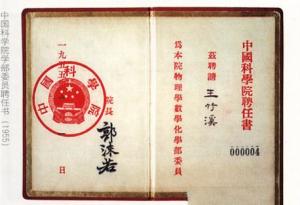 中國科學院聘任書
茲聘請
王竹溪
爲本院物理學數學化學部委員
000004
院長
郭沫若
一九五五
日
中國科學院
中国科学院学部委员聘任书 (1955)